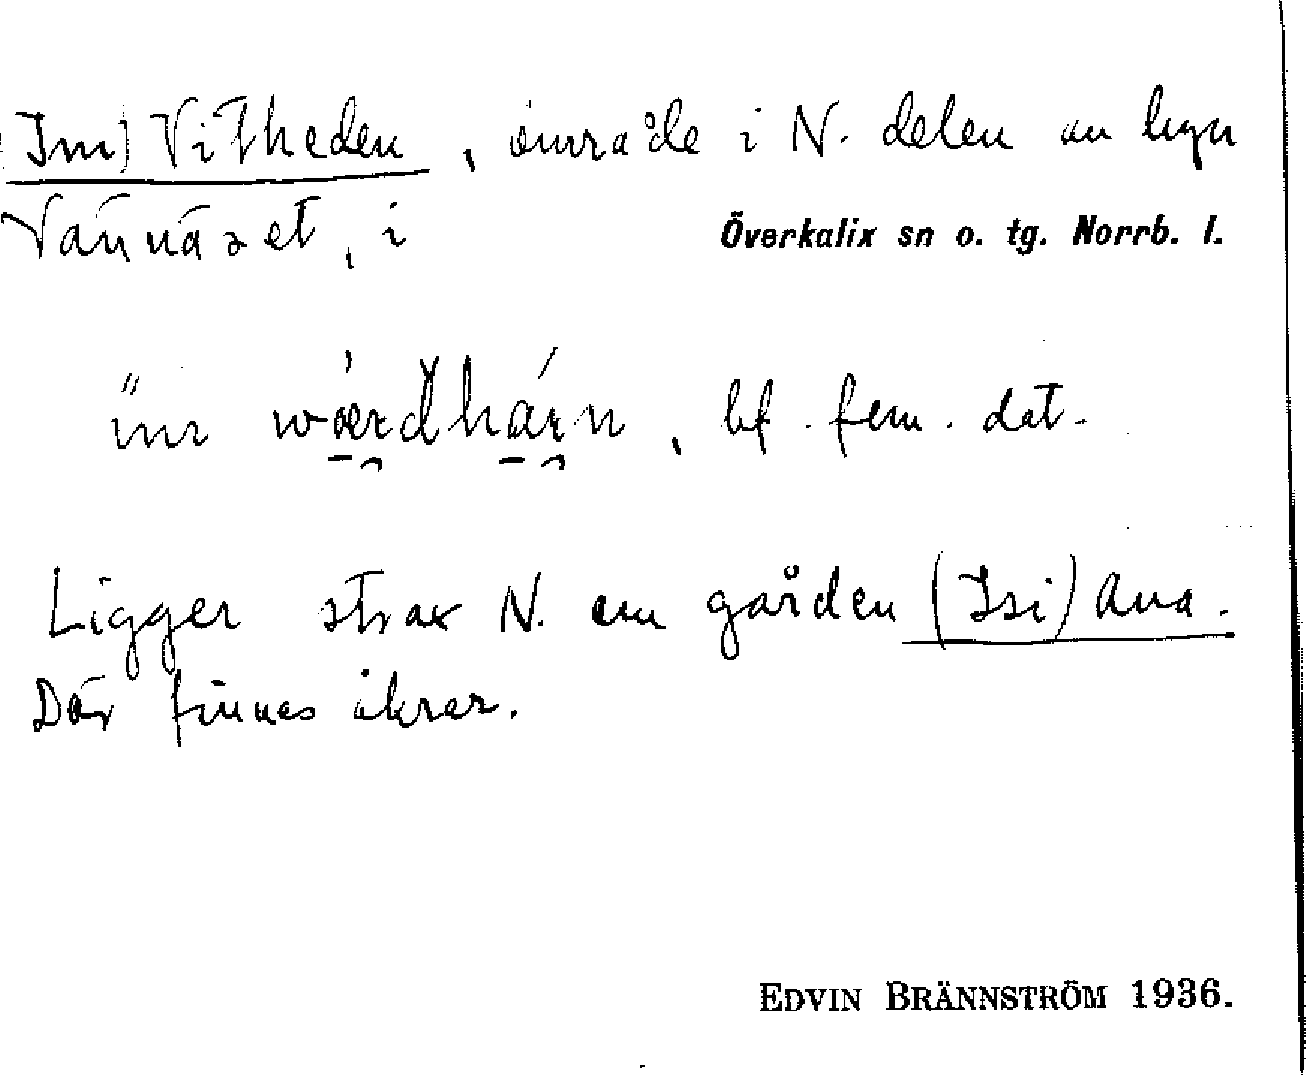 (Im) Vitheden, område i N. delen av byn
Vännäset, i Överkalix sn o. tg. Norrb. l.
bf. fem. dat.
Ligger strax N. om gården (Isi) Ana.
Där finnes åkrar.
EDVIN BRÄNNSTRÖM 1936.